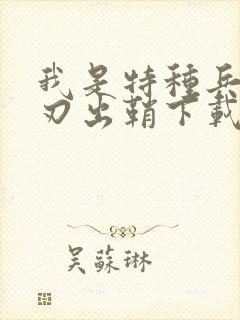 我是特種兵
刃出鞘下載
吴蘇琳